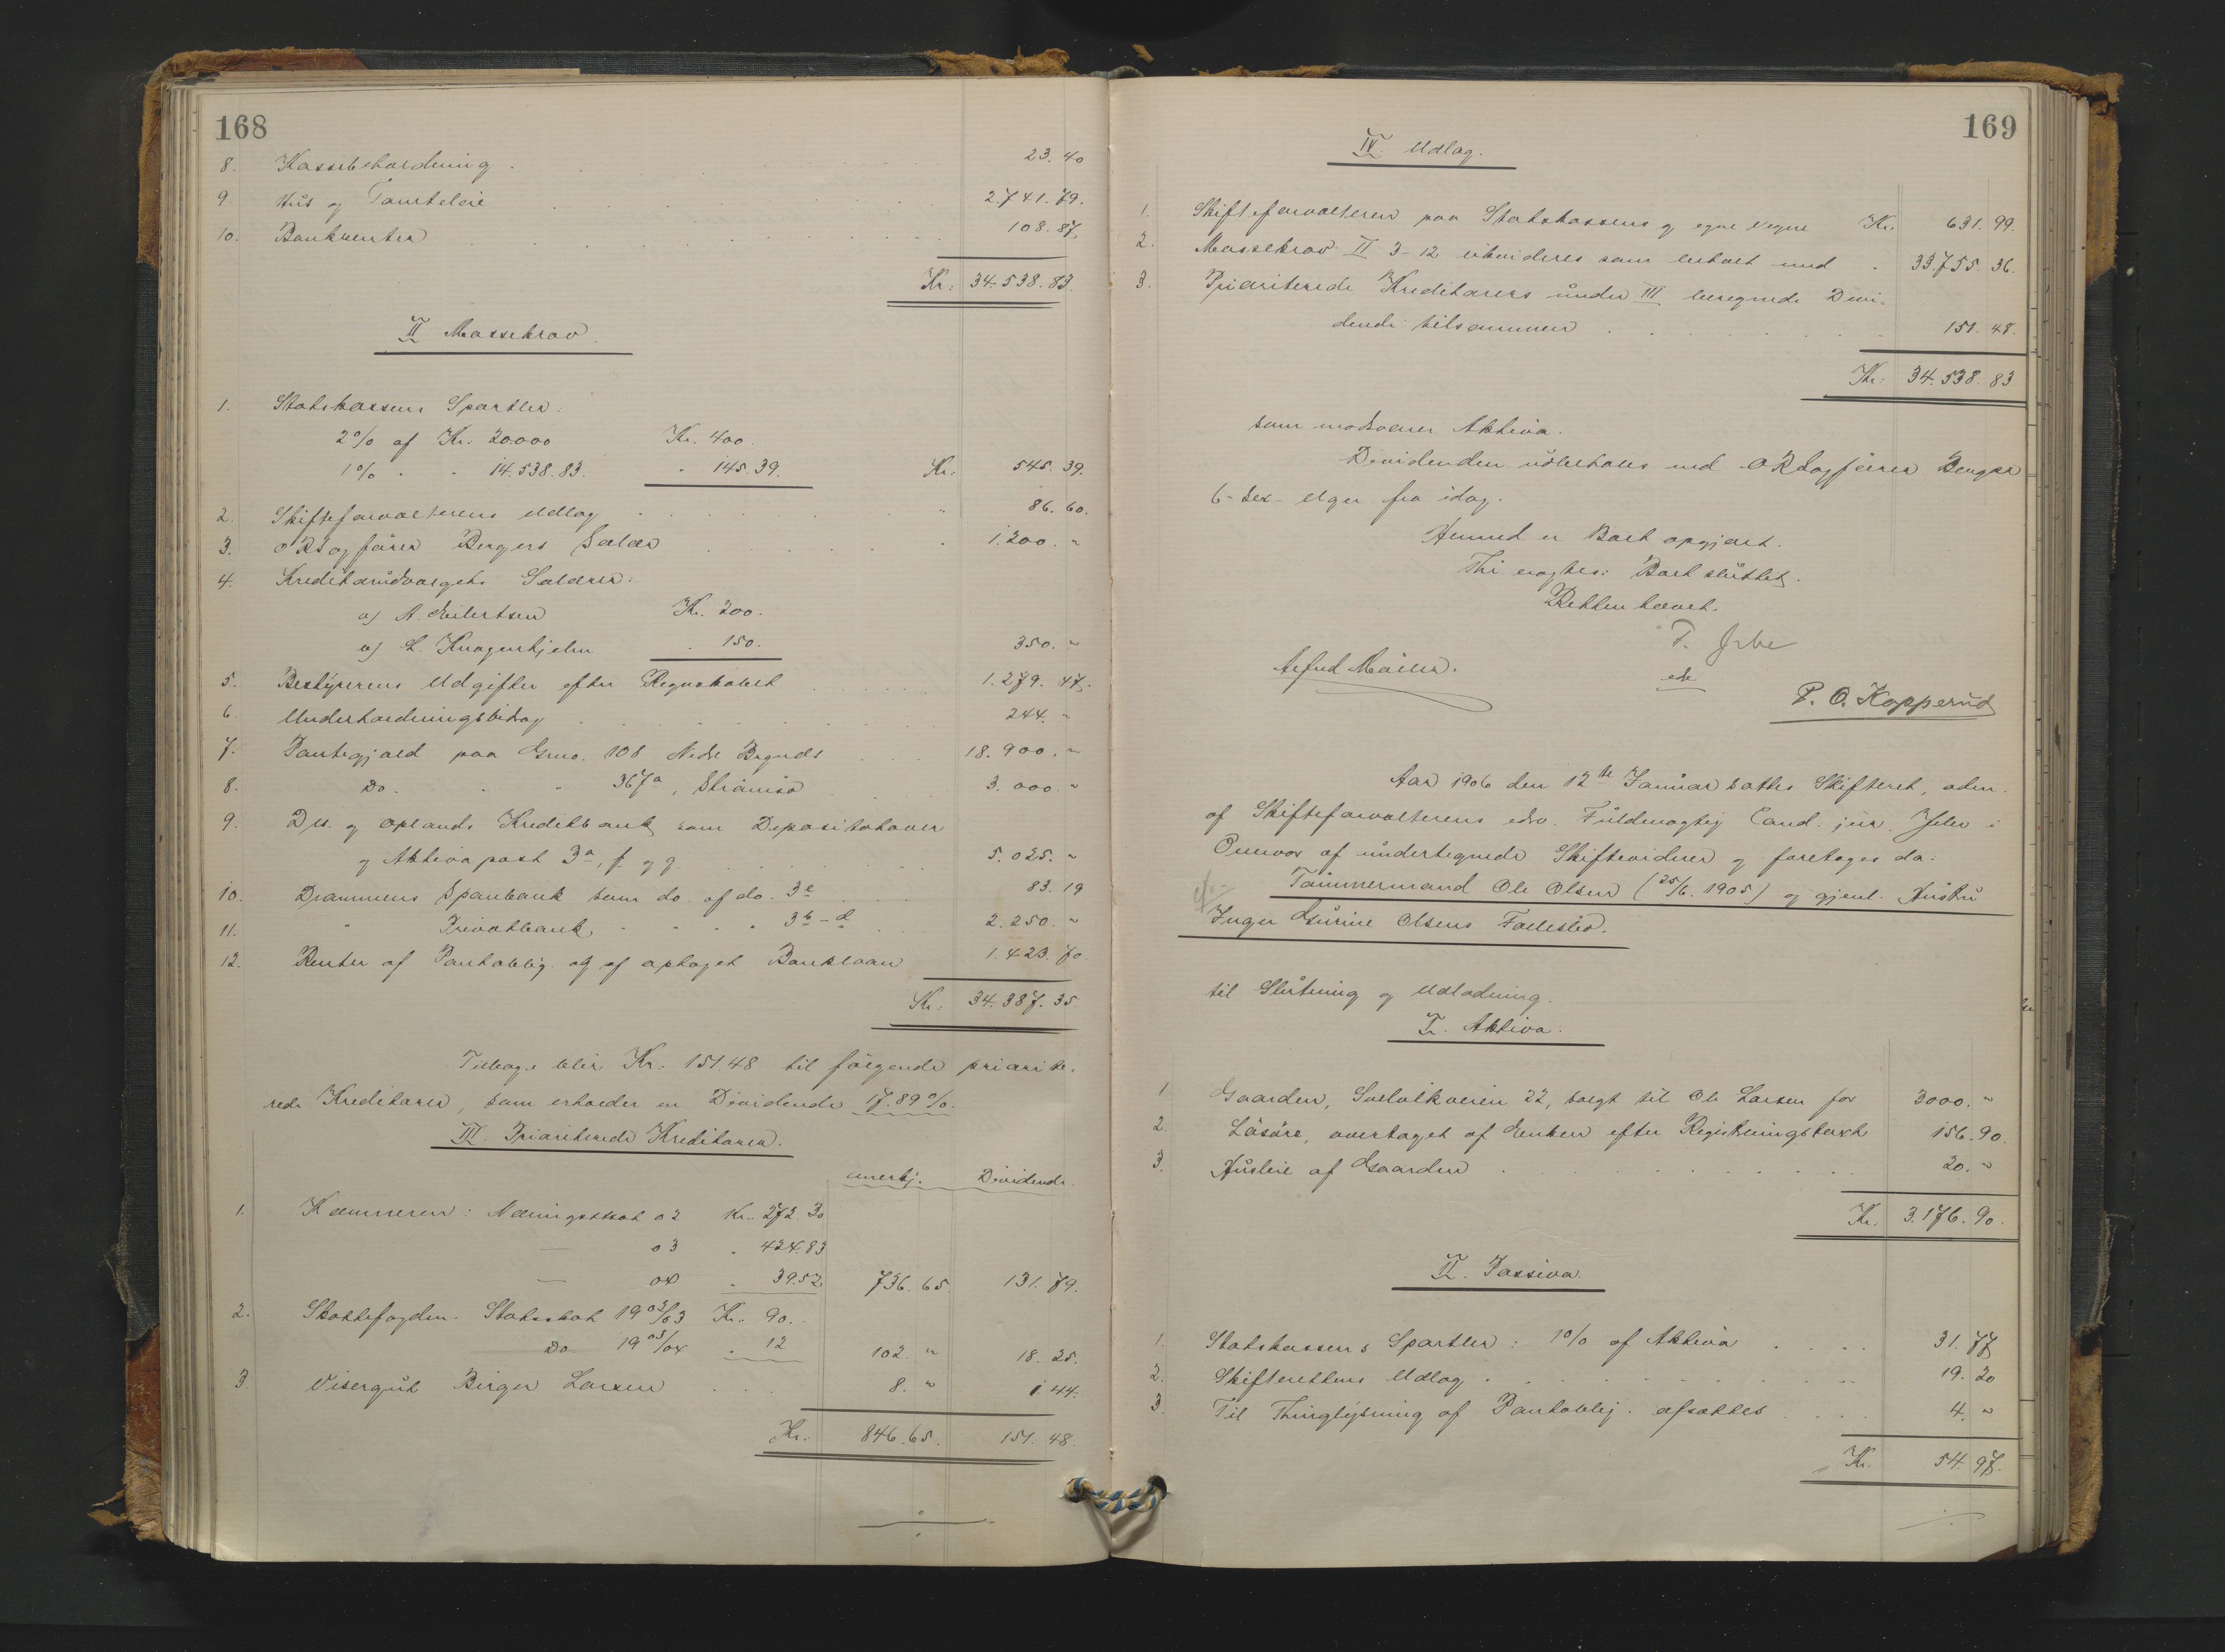 168
8. Kassebeholdning . 23.40
9 Hus og Tomteleie . 2.741.79.
10. Bankrenter . 108.87.
Kr: 34.538.83.
II Massekrav.
1. Statskassens Sportler:
2% af Kr. 20.000 Kr. 400.
1% " " 14.538.83. " 145.39. Kr. 545.39.
2. Skifteforvalterens Udlæg " 86.60.
3. ORSagfører Bergers Salær " 1.200. "
4. Kreditorudvalgets Salærer:
a) A. Eilertsen Kr. 200.
b) L. Knagenhjelm " 150. 350. "
5. Bestyrerens Udgifter efter Regnskabet 1.279.47.
6. Underholdningsbidrag 244. "
7. Pantegjæld paa Gruo. 108 Nedre 18.900. "
8. Do. " " 367a, Strømsø 3.000. "
9. Drs. og Oplands Kreditbank som Depositohaver
og Aktivapost 3a, f og g. 5.025. "
10. Drammens Sparebank som do. af do. 3e 83.19
11. " Privatbank " " " " 3b-d 2.250. "
12. Renter af Pantoblig. og af optaget Banklaan 1.423.70.
Kr. 34.387.35.
Tilbage blir Kr. 151.48 til følgende priorite-
rede Kreditorer, som erholder en Dividende 17.89%.
III. Prioriterede Kreditorer.
anerkj. Dividende.
1. Kæmneren: Næringsskat 02 Kr. 272.30
— 03 " 424.83
— 04 " 39.52 736.65. 131.79.
2. Skattefogden. Statsskat 1902/03 Kr. 90.
Do 1903/04 " 12 102. " 18.25.
3. Visergut Birger Larsen 8. " 1.44.
Kr. 846.65. 151.48.
169
IV. Udlæg.
1. Skifteforvalteren paa Statskassens og egne Vegne Kr. 631.99.
2. Massekrav II 3-12 likvideres som betalt med " 33.755.36.
3. Prioriterede Kreditorers under III beregnede Divi-
dende tilsammen 151.48.
Kr: 34.538.83
som modsvarer Aktiva.
Dividenden udbetales ved ORSagfører Berger
6 - sex - Uger fra idag.
Hermed er Boet opgjort.
Thi eragtes: Boet sluttet.
Retten hævet.
Arfud Møller.
P. O. Kopperud
Aar 1906 den 12te Januar sattes Skifteret, adm.
af Skifteforvalterens edsv. Fuldmægtig Cand. jur. i
Overvær af undertegnede Skiftevidner og foretoges da:
Tømmermand Ole Olsen (25/6. 1905) og gjenl. Hustru
Inger Gurine Olsens Fællesbo.
til Slutning og Udlodning.
I. Aktiva.
1. Gaarden, Svelvikveien 22, solgt til Ole Larsen for 3000. "
2. Løsøre, overtaget af Enken efter Registreringstaxt 156.90.
3. Husleie af Gaarden 20. "
Kr. 3.176.90.
II. Passiva.
1. Statskassens Sportler: 1% af Aktiva 31.77
2. Skifterettens Udlæg 19.20
3. Til Thinglysning af Pantoblig. afsættes 4. "
Kr. 54.97.